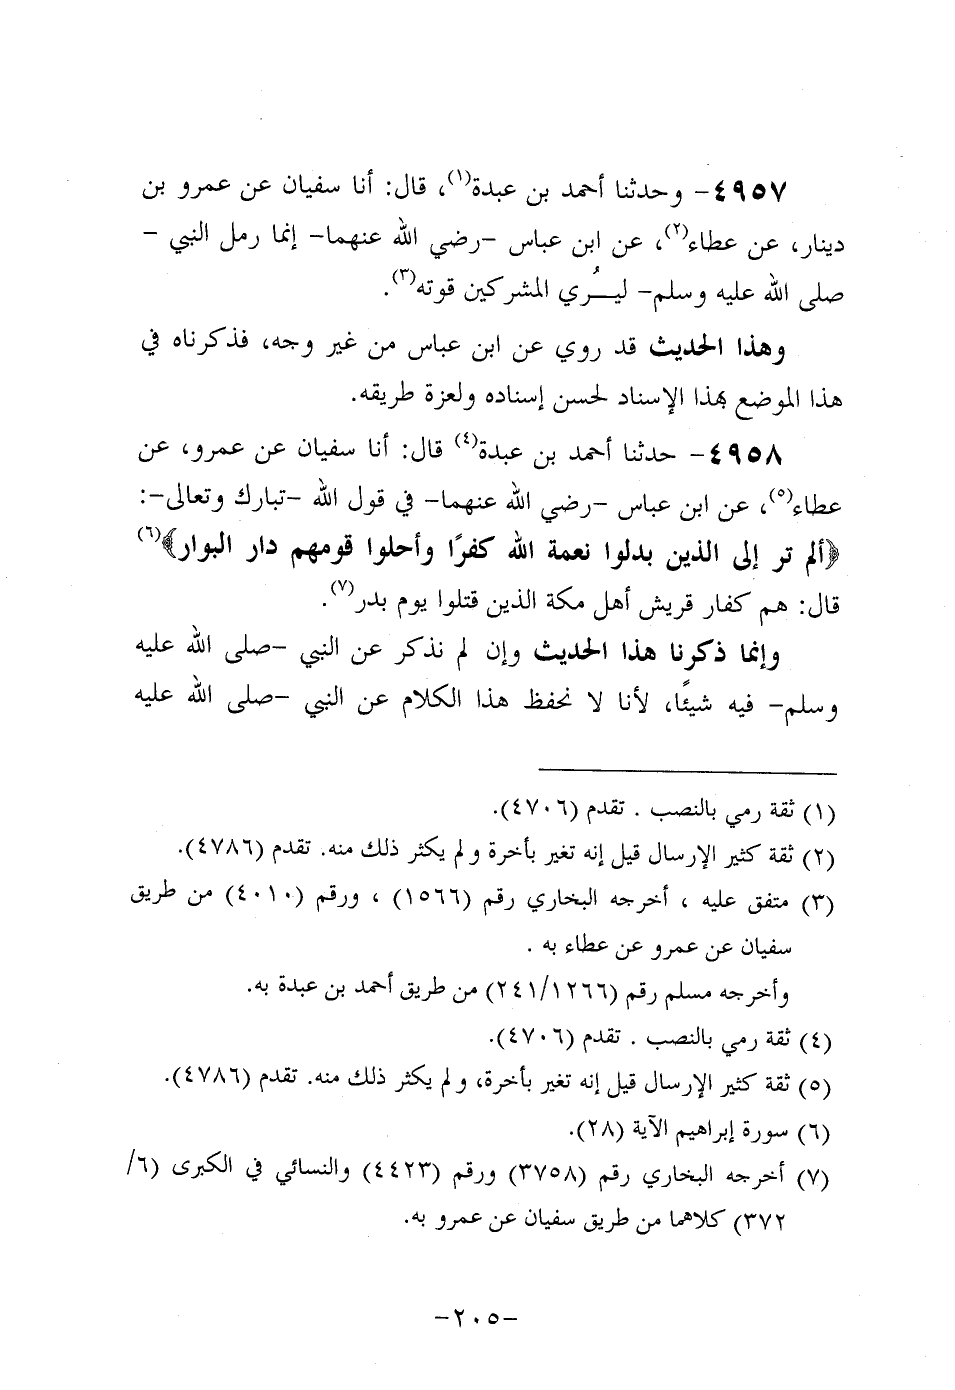 ٤٩٥٧- وحدثنا أحمد بن عبدة(١)، قال: أنا سفيان عن عمرو بن
دينار، عن عطاء(٢)، عن ابن عباس -رضي الله عنهما- إنما رمل النبي -
صلى الله عليه وسلم- ليُري المشركين قوته(٣).
وهذا الحديث قد روي عن ابن عباس من غير وجه، فذكرناه في
هذا الموضع بهذا الإسناد لحسن إسناده ولعزة طريقه.
٤٩٥٨- حدثنا أحمد بن عبدة(٤) قال: أنا سفيان عن عمرو، عن
عطاء(٥)، عن ابن عباس -رضي الله عنهما- في قول الله -تبارك وتعالى-:
﴿ألم تر إلى الذين بدلوا نعمة الله كفرًا وأحلوا قومهم دار البوار﴾(٦)
قال: هم كفار قريش أهل مكة الذين قتلوا يوم بدر(٧).
وإنما ذكرنا هذا الحديث وإن لم نذكر عن النبي -صلى الله عليه
وسلم- فيه شيئًا، لأنا لا نحفظ هذا الكلام عن النبي -صلى الله عليه
(١) ثقة رمي بالنصب . تقدم (٤٧٠٦).
(٢) ثقة كثير الإرسال قيل إنه تغير بأخرة ولم يكثر ذلك منه. تقدم (٤٧٨٦).
(٣) متفق عليه ، أخرجه البخاري رقم (١٥٦٦) ، ورقم (٤٠١٠) من طريق
سفيان عن عمرو عن عطاء به .
وأخرجه مسلم رقم (٢٤١/١٢٦٦) من طريق أحمد بن عبدة به.
(٤) ثقة رمي بالنصب . تقدم (٤٧٠٦).
(٥) ثقة كثير الإرسال قيل إنه تغير بأخرة، ولم يكثر ذلك منه. تقدم (٤٧٨٦).
(٦) سورة إبراهيم الآية (٢٨).
(٧) أخرجه البخاري رقم (٣٧٥٨) ورقم (٤٤٢٣) والنسائي في الكبرى (٦/
٣٧٢) كلاهما من طريق سفيان عن عمرو به.
-٢٠٥-